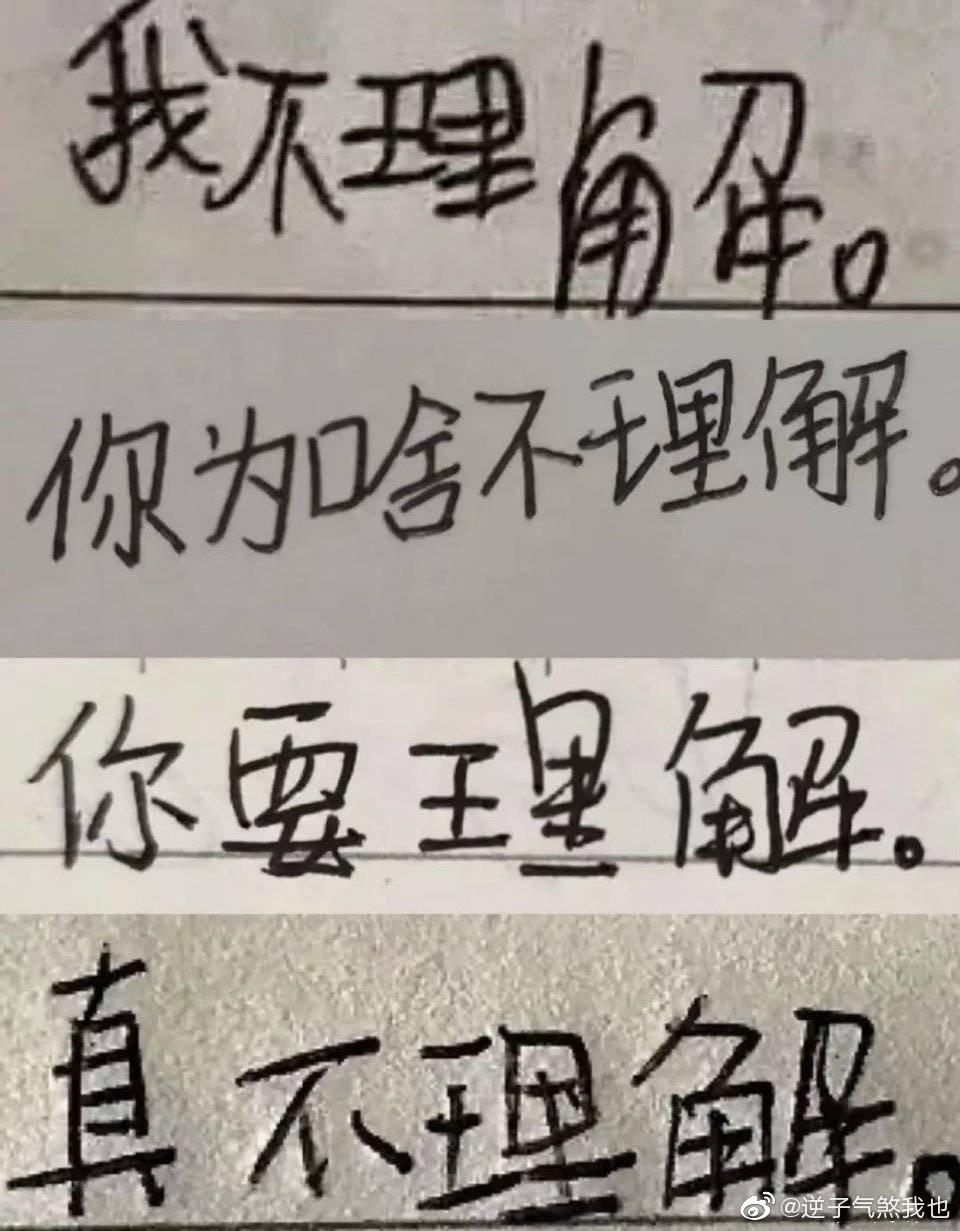 我不理解。
你为啥不理解。
你要理解。
真不理解。
@逆子气煞我也